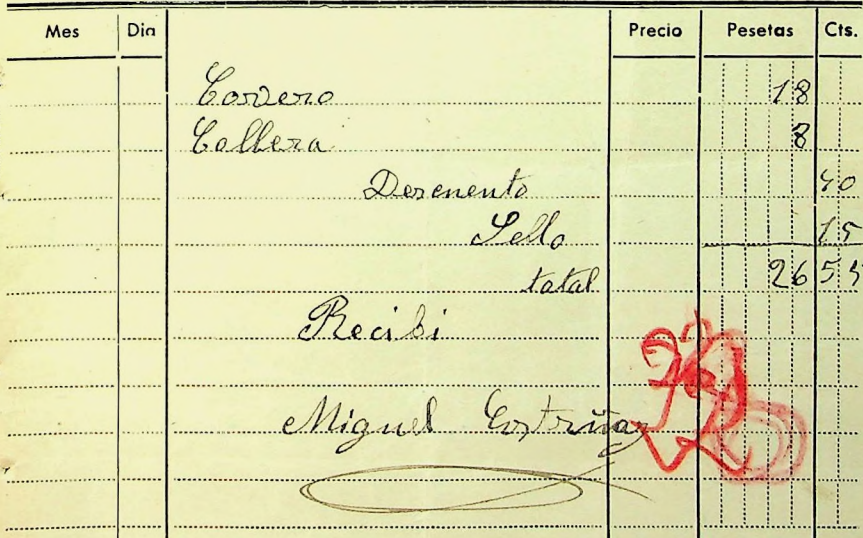 Mes Dia Precio Pesetas Cts.
18
Collera 8
Descuento 40
Sello 15
total 26 55
Recibi
Miguel